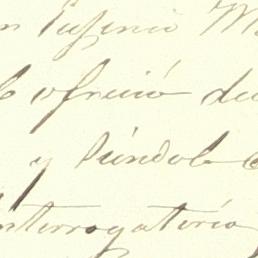 n Eugenio M
ofreció de
y siéndole
nterrogatorio